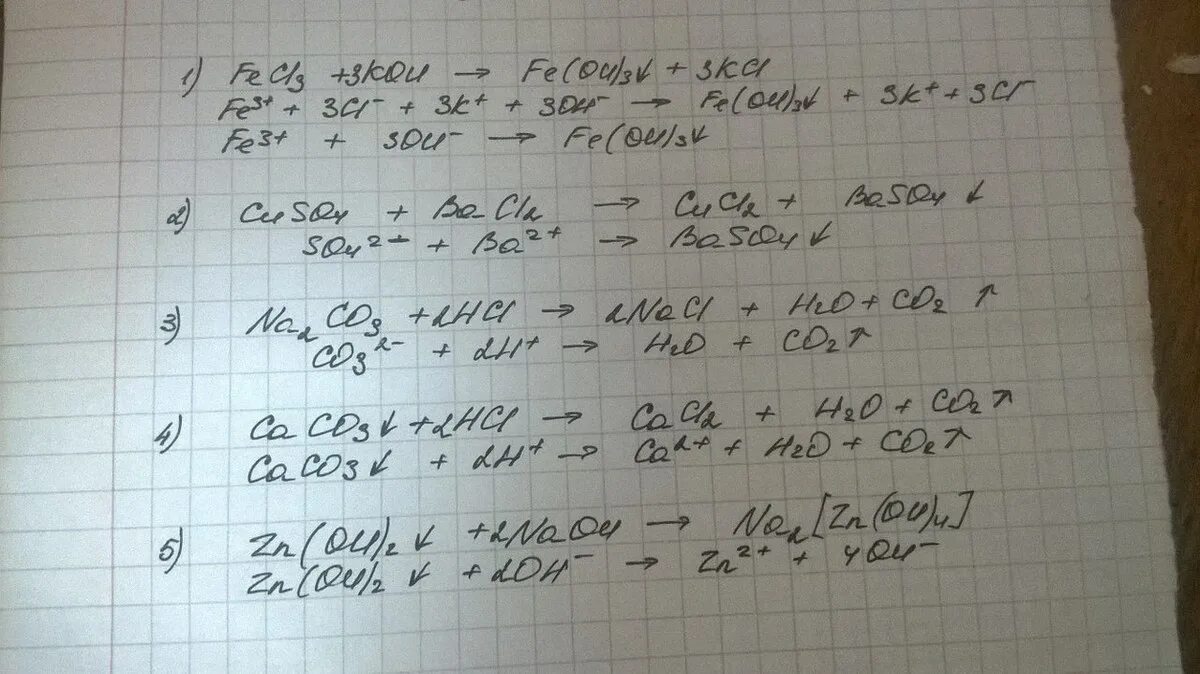 1) FeCl₃ + 3KOH → Fe(OH)₃↓ + 3KCl
Fe³⁺ + 3Cl⁻ + 3K⁺ + 3OH⁻ → Fe(OH)₃↓ + 3K⁺ + 3Cl⁻
Fe³⁺ + 3OH⁻ → Fe(OH)₃↓
2) CuSO₄ + BaCl₂ → CuCl₂ + BaSO₄↓
SO₄²⁻ + Ba²⁺ → BaSO₄↓
3) Na₂CO₃ + 2HCl → 2NaCl + H₂O + CO₂↑
CO₃²⁻ + 2H⁺ → H₂O + CO₂↑
4) CaCO₃↓ + 2HCl → CaCl₂ + H₂O + CO₂↑
CaCO₃↓ + 2H⁺ → Ca²⁺ + H₂O + CO₂↑
5) Zn(OH)₂↓ + 2NaOH → Na₂[Zn(OH)₄]
Zn(OH)₂↓ + 2OH⁻ → Zn²⁺ + 4OH⁻